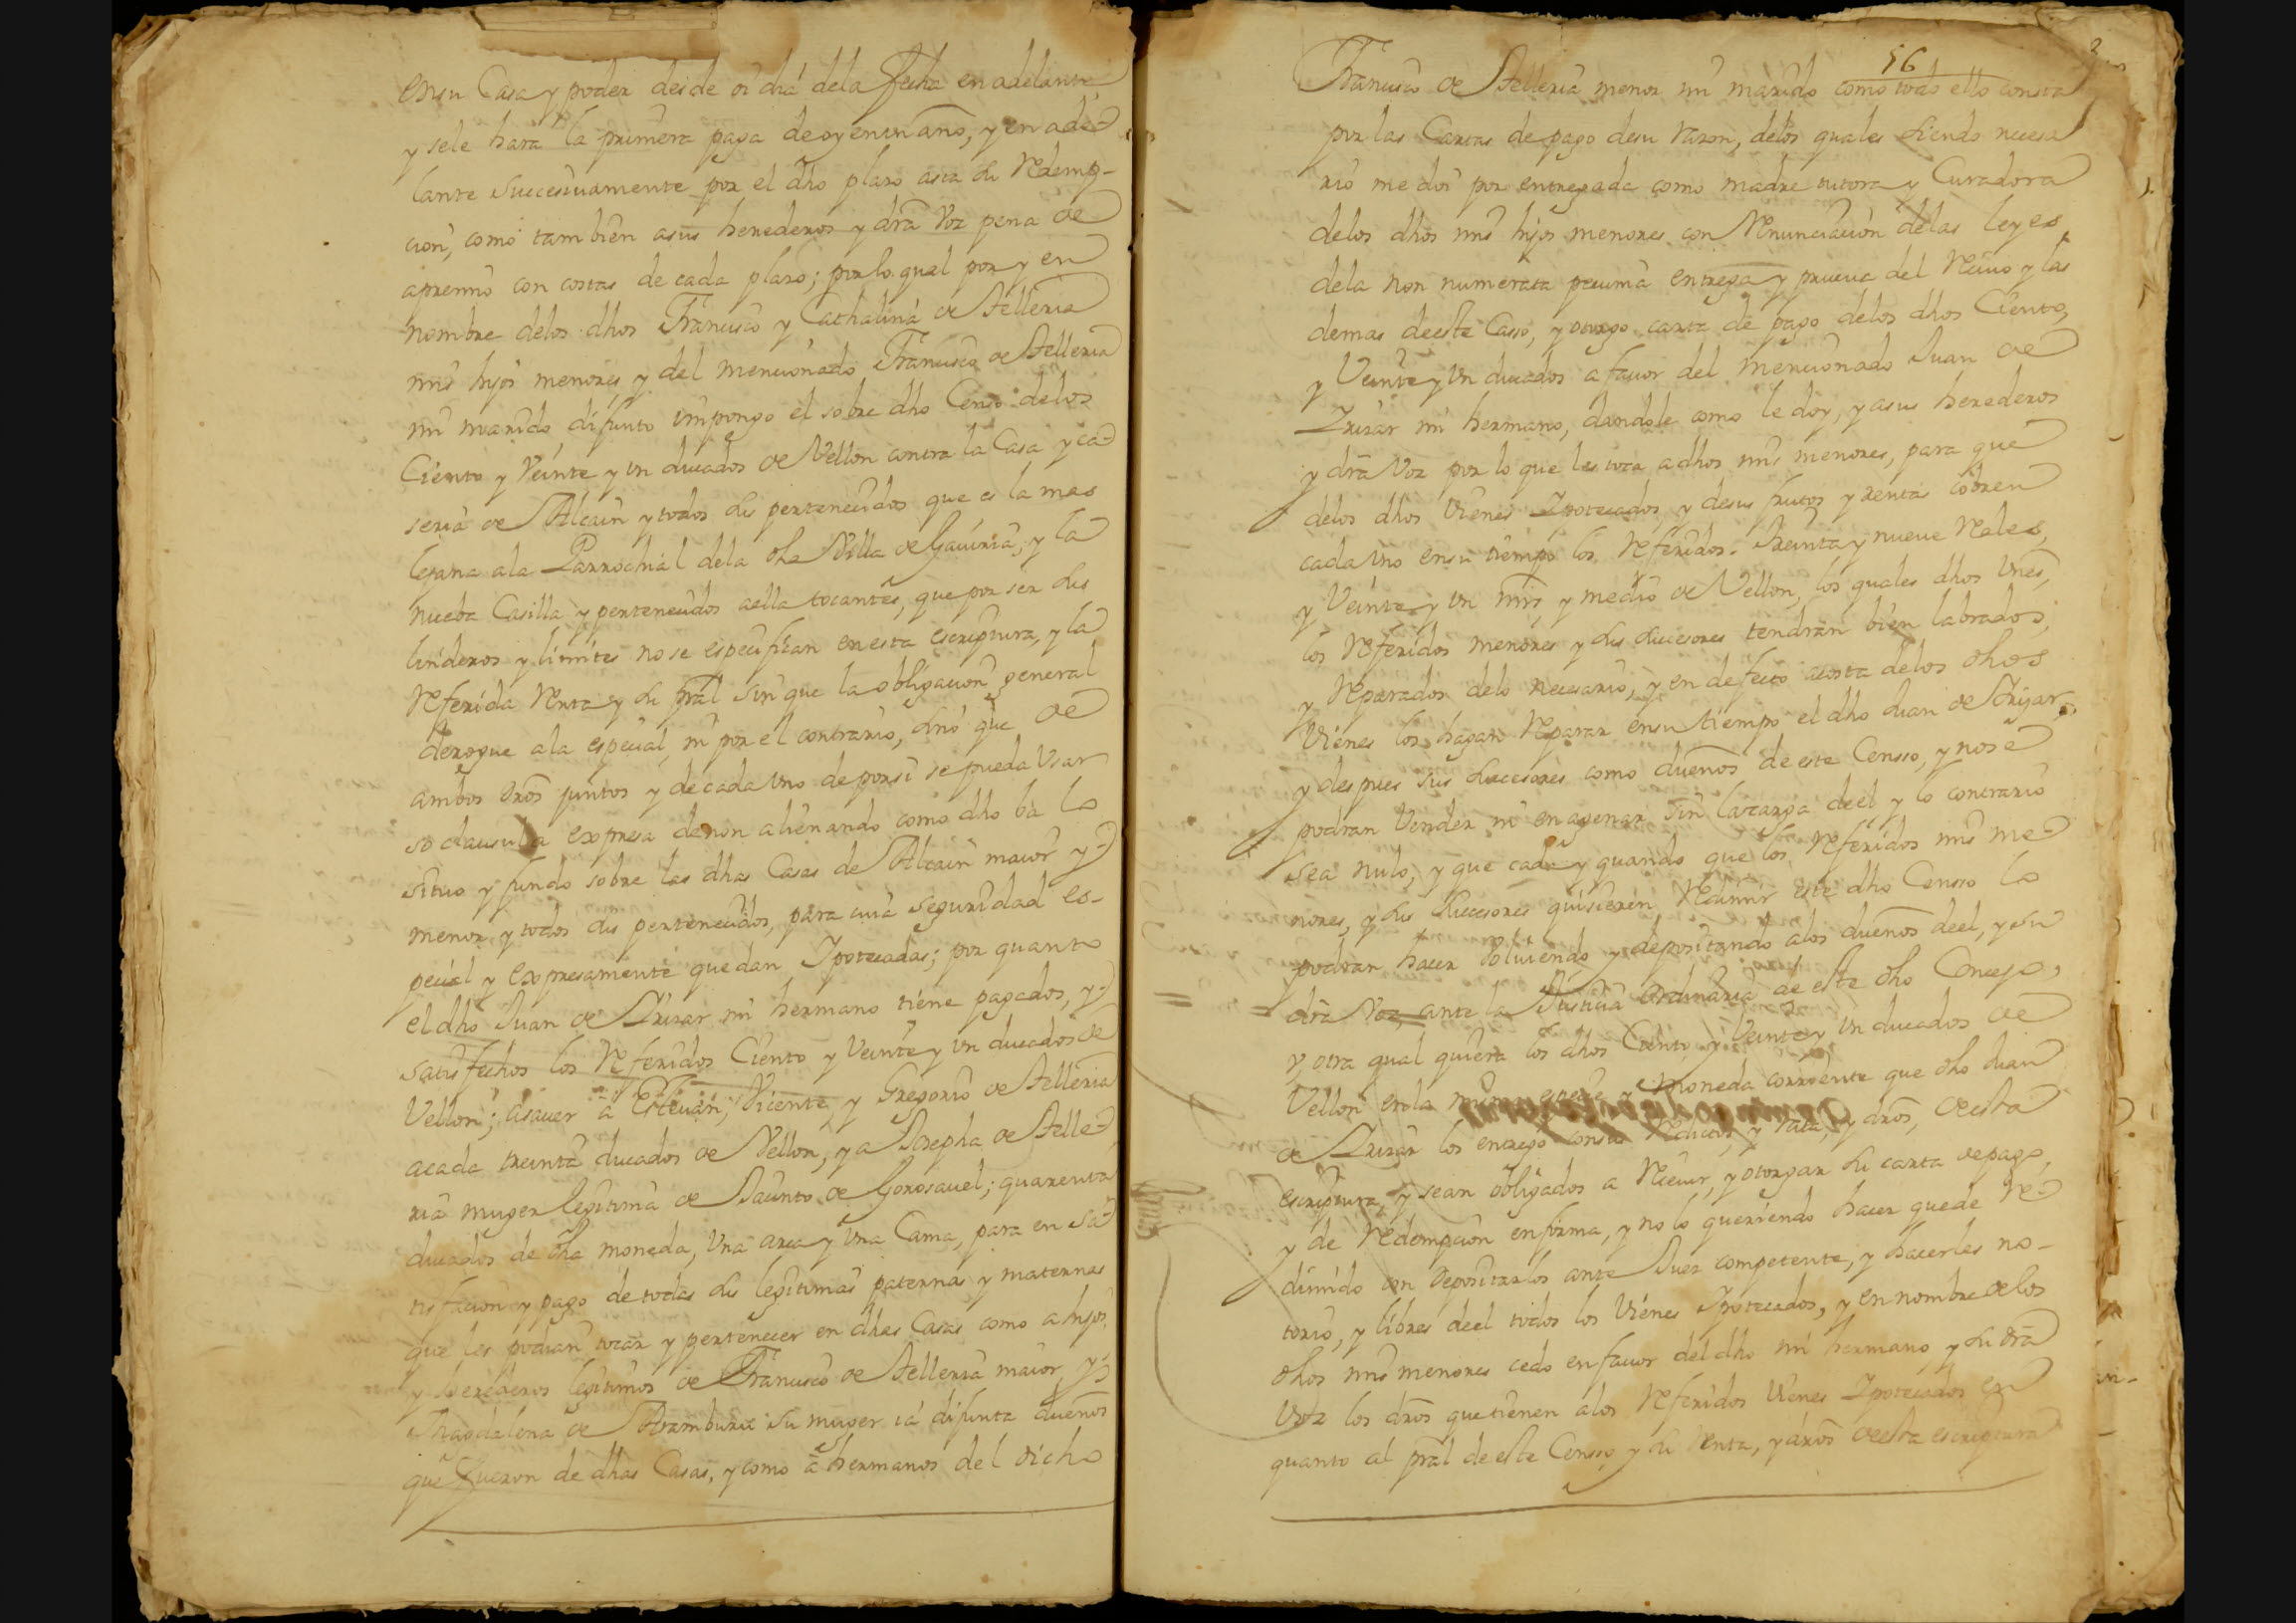 ensu Casa y poder desde oi dia dela fecha en adelante,
y sele hara la primera paga de oy en un año, y en ade-
lante succesivamente por el dho plazo asta su Redemp-
cion, como tambien asus herederos y dra voz pena de
apremio con costas de cada plazo; por lo qual por y en
nombre delos dhos Francisco y Cathalina de Telleria
mis hijos menores, y del mencionado Francisco de Telleria
mi marido difunto impongo el sobre dho Censo delos
Ciento y Veinte y un ducados de Vellon contra la Casa y ca-
seria de Alcain y todos sus pertenecidos que es la mas
lejana ala Parrochial dela dha Villa de Gaviria, y la
nueba Casilla y pertenecidos aella tocantes, que por ser sus
linderos y limites no se especifican en esta escriptura, y la
Referida Renta y su pral sin que la obligacion general
derogue ala especial, ni por el contrario, sino que de
ambos dros juntos y de cada uno de por si se pueda Usar
so clausula expresa denon alienando como dho ba lo
situo y fundo sobre las dhas Casas de Alcain maior y
menor y todos sus pertenecidos, para cuia seguridad es-
pecial y expresamente quedan Ipotecadas; por quanto
el dho Juan de Irizar mi hermano tiene pagados, y
satisfechos los Referidos Ciento y Veinte y un ducados de
Vellon; asaver à Estevan, Vicente, y Gregorio de Telleria
acada treinta ducados de Vellon, y a Josepha de Telle-
ria muger legitima de Jacinto de Gorosavel; quarenta
ducados de dha moneda, Una arca y Una Cama, para en sa-
tisfacion y pago de todas sus legitimas paternas y maternas
que les podian tocar y pertenecer en dhas Casas como a hijos,
y herederos legitimos de Francisco de Telleria maior, y
Magdalena de Aramburu su muger ia difunta dueños
que fueron de dhas Casas, y como à hermanos del dicho
56
Francisco de Telleria menor mi marido como todo ello consta
por las Cartas de pago desu razon, delos quales siendo necesa
rio me doi por entregada como madre tutora y Curadora
delos dhos mis hijos menores con Renunciacion delas leyes
dela non numerata pecunia entrega y prueva del Recivo y las
demas deeste Casso, y otorgo carta de pago delos dhos Ciento,
y Veinte y un ducados a favor del mencionado Juan de
Irizar mi hermano, dandole como le doy, y asus herederos
y dra voz por lo que les toca adhos mis menores, para que
delos dhos vienes Ipotecados, y desus frutos y rentas cobren
cada uno ensu tiempo los Referidos. Treinta y nueve Reales,
y Veinte y un mrs y medio de Vellon, los quales dhos vnes,
los Referidos menores y sus succesores tendran bien labrados,
y Reparados delo necesario, y en defecto acosta delos dhos
vienes los hagan Reparar ensu tiempo el dho Juan de Irizar,
y despues sus succesores como dueños de este Censso, y nose
podran Vender ni enagenar sin lacarga deel y lo contrario
sea nulo; y que cada y quando que los Referidos mis me
nores, y sus succesores quisieren Redimir este dho Censso lo
podran hacer Volviendo y depositando alos dueños deel, y su
dra voz, ante la Justicia ordinaria de este dho Concejo,
y otra qual quiera los dhos Ciento y Veinte y un ducados de
Vellon enla misma especie y moneda corriente que dho Juan
de Irizar los entregó consus Reditos, y rata, y dros, deesta
escriptura, y sean obligados a Recivir, y otorgar su carta depago,
y de redempcion enforma, y no lo queriendo hacer quede re-
dimido con depositarlos ante Juez competente, y hacerles no-
torio, y libres deel todos los vienes Ipotecados, y en nombre delos
dhos mis menores cedo enfavor del dho mi hermano y su dra
voz los dros que tienen alos Referidos vienes Ipotecados en
quanto al pral de este Censso, y su Renta, y dros deesta escriptura